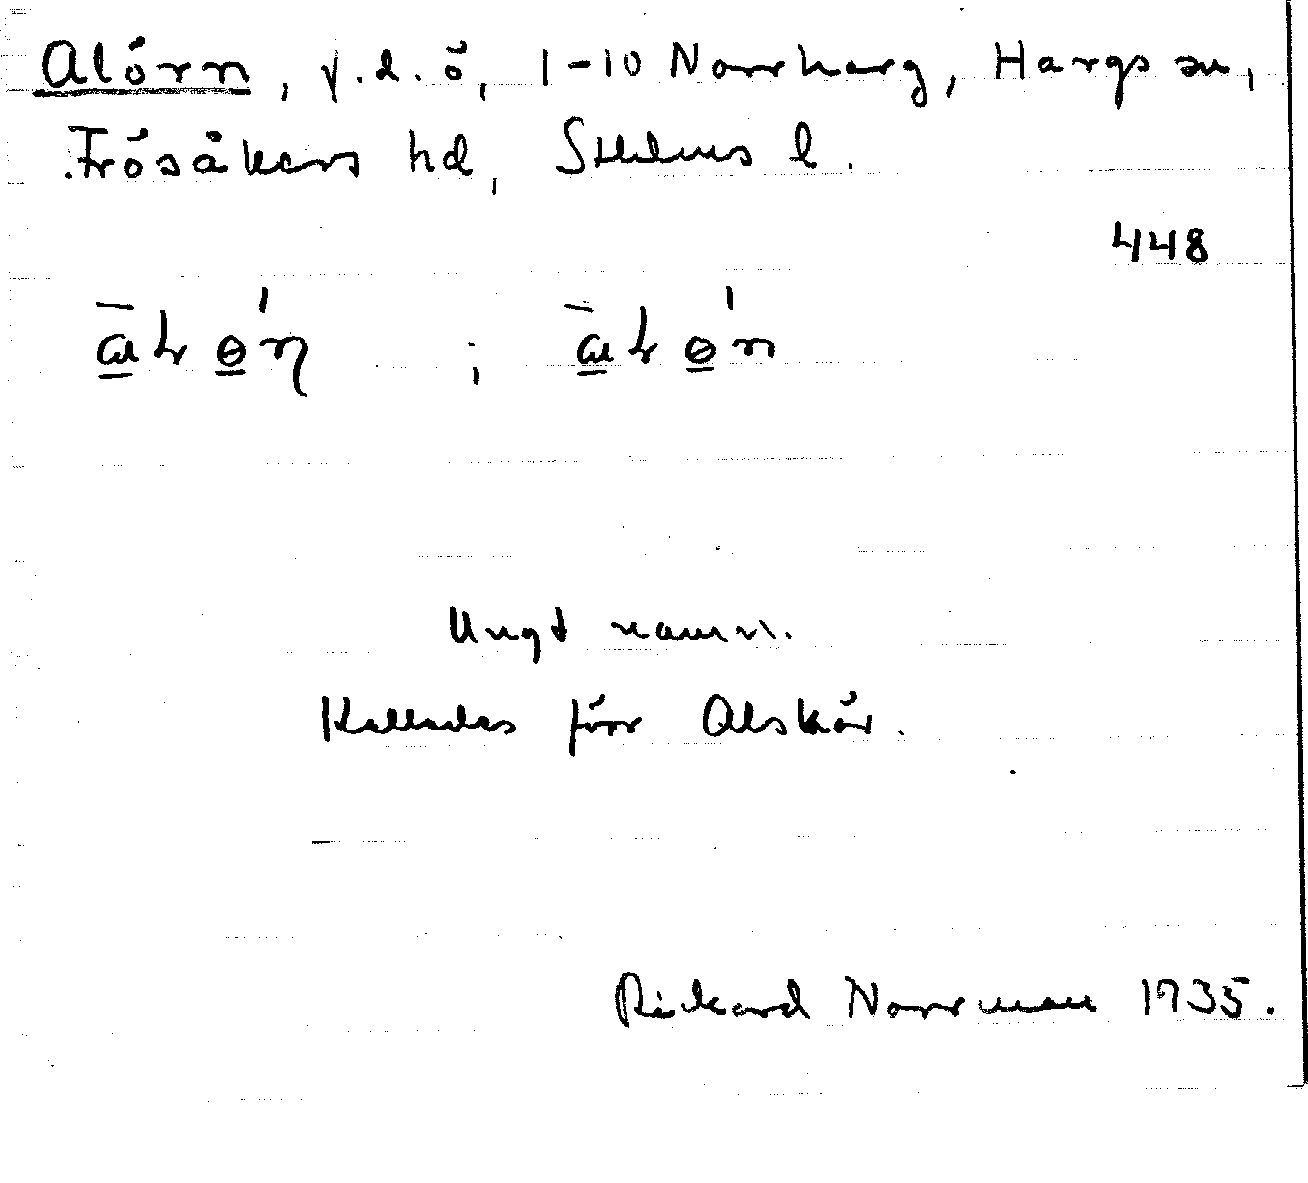 Alörn, y.d.ö, 1-10 Norrharg, Hargs sn,
Frösåkers hd, Sthlms l.
448
Ungt namn.
Kallades förr Alskär.
Rickard Norrman 1935.